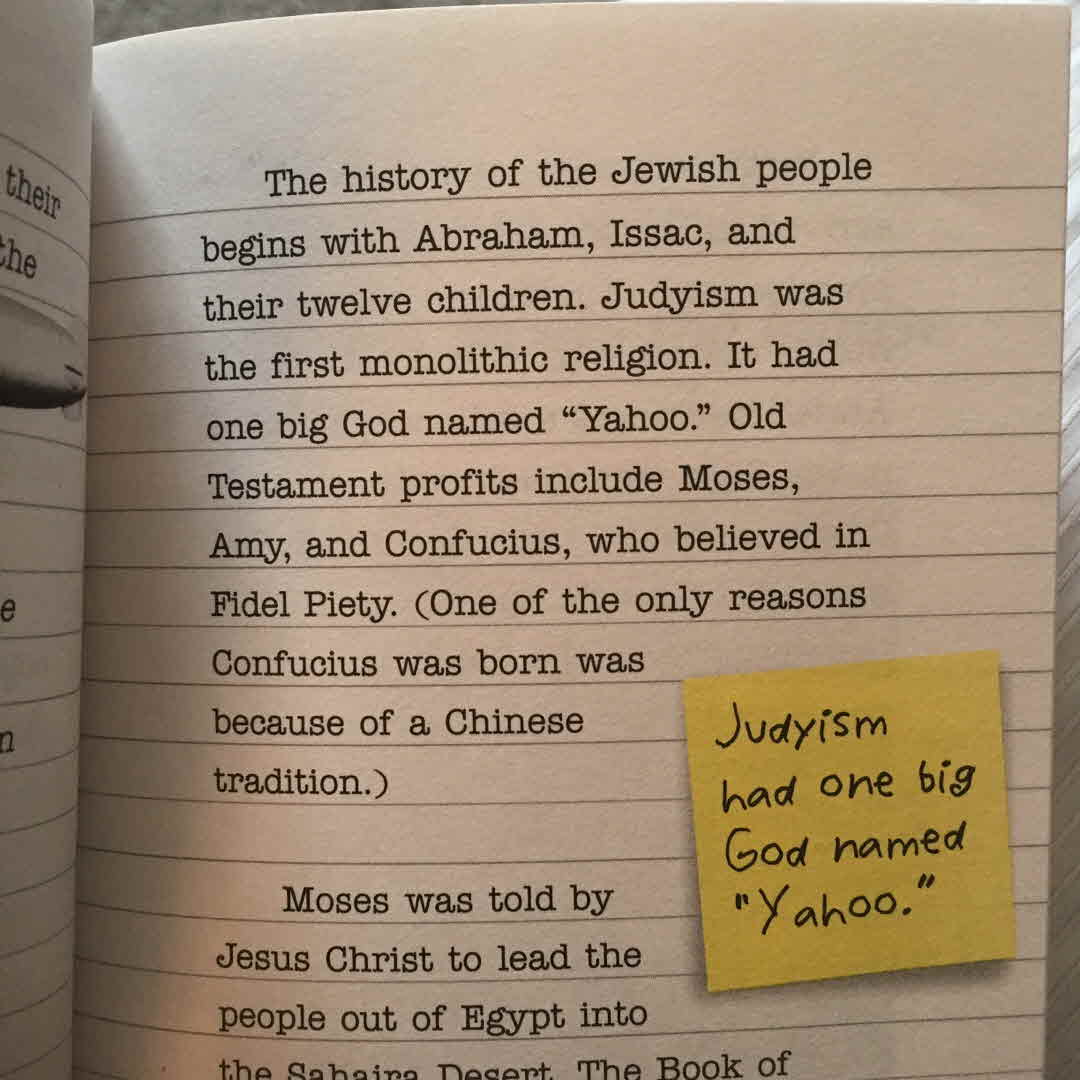 their
the
e
n
The history of the Jewish people
begins with Abraham, Issac, and
their twelve children. Judyism was
the first monolithic religion. It had
one big God named “Yahoo.” Old
Testament profits include Moses,
Amy, and Confucius, who believed in
Fidel Piety. (One of the only reasons
Confucius was born was
because of a Chinese
tradition.)
Moses was told by
Jesus Christ to lead the
people out of Egypt into
the Sahaira Desert. The Book of
Judyism
had one big
God named
"Yahoo."